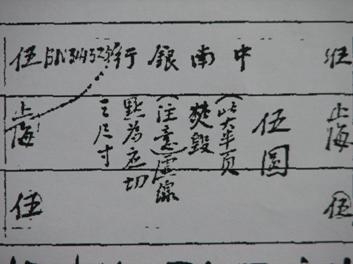 伍
中南銀行
伍
上海
伍圓
(此大半頁
焚毀
(注意)虛線
點為應切
之尺寸
上海
伍
伍